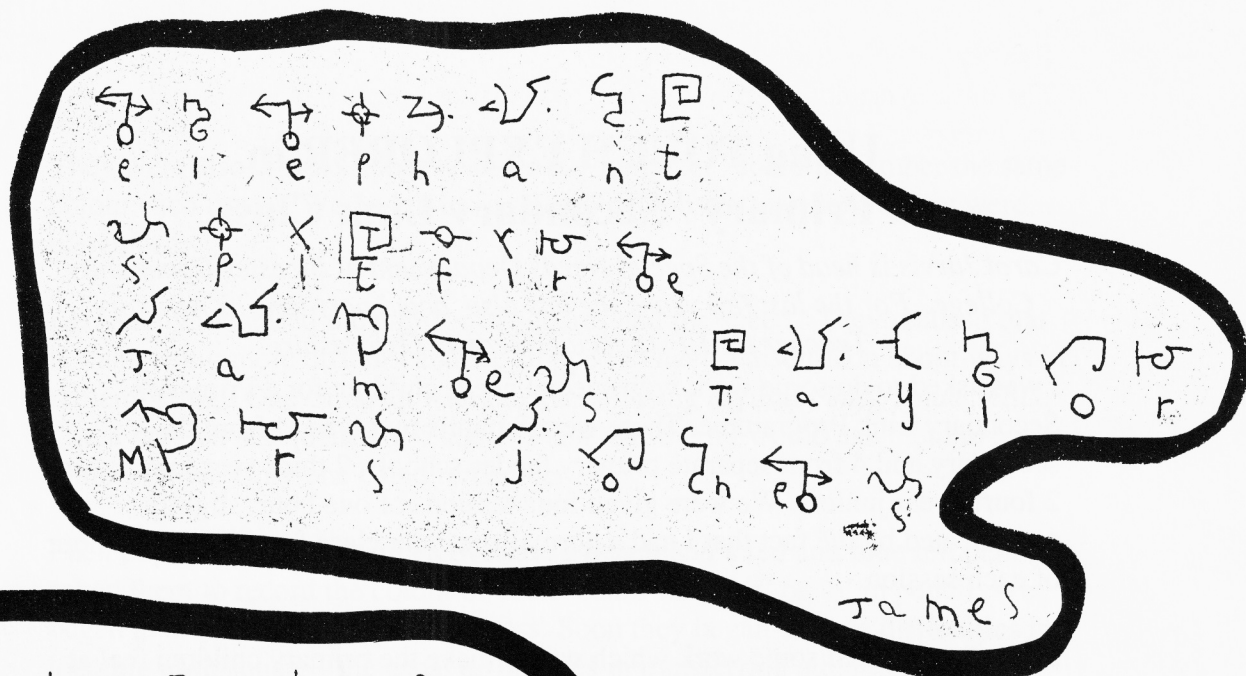 elephant
spitfire
James Taylor
Mrs jones
James